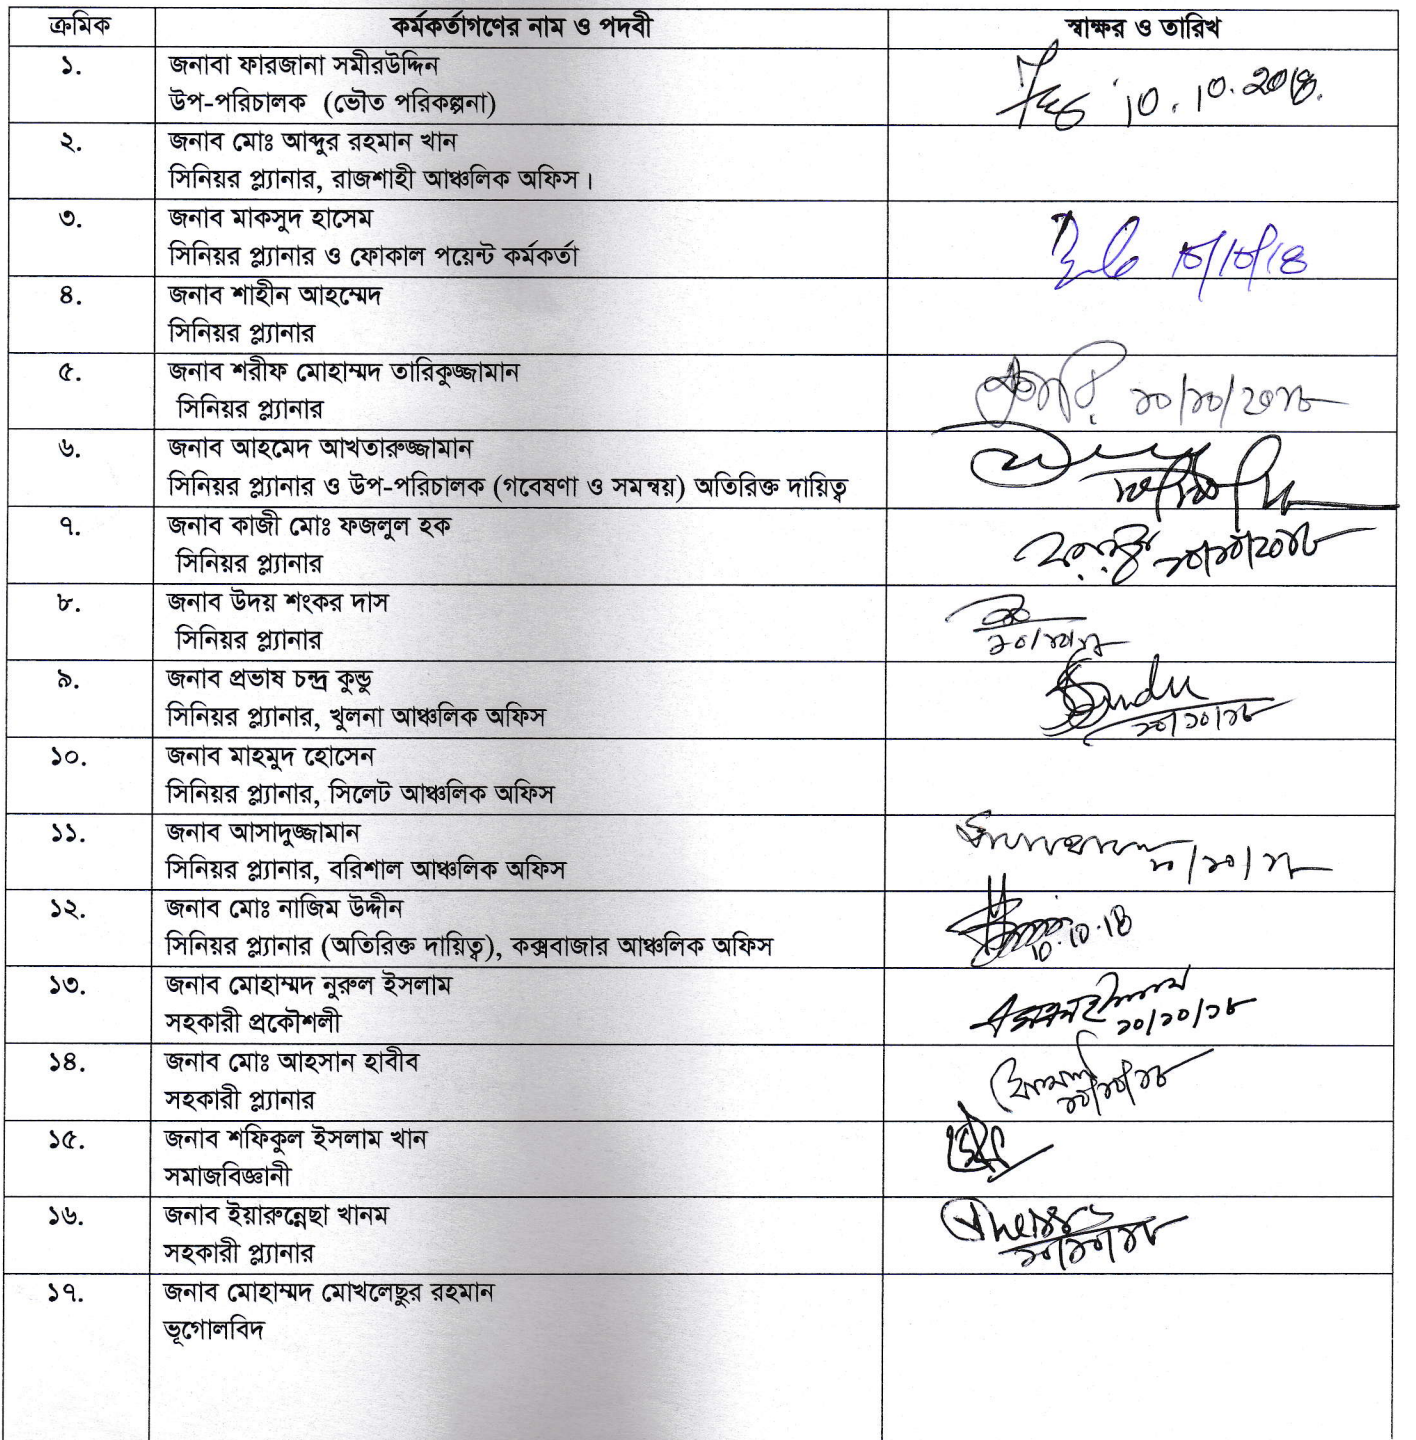 ক্রমিক কর্মকর্তাগণের নাম ও পদবী স্বাক্ষর ও তারিখ
১. জনাবা ফারজানা সমীরউদ্দিন
উপ-পরিচালক (ভৌত পরিকল্পনা) 10.10.2018.
২. জনাব মোঃ আব্দুর রহমান খান
সিনিয়র প্ল্যানার, রাজশাহী আঞ্চলিক অফিস।
৩. জনাব মাকসুদ হাসেম
সিনিয়র প্ল্যানার ও ফোকাল পয়েন্ট কর্মকর্তা 10/10/18
৪. জনাব শাহীন আহম্মেদ
সিনিয়র প্ল্যানার
৫. জনাব শরীফ মোহাম্মদ তারিকুজ্জামান
সিনিয়র প্ল্যানার ১০/১০/২০১৮
৬. জনাব আহমেদ আখতারুজ্জামান
সিনিয়র প্ল্যানার ও উপ-পরিচালক (গবেষণা ও সমন্বয়) অতিরিক্ত দায়িত্ব
৭. জনাব কাজী মোঃ ফজলুল হক
সিনিয়র প্ল্যানার ১০/১০/২০১৮
৮. জনাব উদয় শংকর দাস
সিনিয়র প্ল্যানার ১০/১০/১৮
৯. জনাব প্রভাষ চন্দ্র কুন্ডু
সিনিয়র প্ল্যানার, খুলনা আঞ্চলিক অফিস ১০/১০/১৮
১০. জনাব মাহমুদ হোসেন
সিনিয়র প্ল্যানার, সিলেট আঞ্চলিক অফিস
১১. জনাব আসাদুজ্জামান
সিনিয়র প্ল্যানার, বরিশাল আঞ্চলিক অফিস ১০/১০/১৮
১২. জনাব মোঃ নাজিম উদ্দীন
সিনিয়র প্ল্যানার (অতিরিক্ত দায়িত্ব), কক্সবাজার আঞ্চলিক অফিস 10.10.18
১৩. জনাব মোহাম্মদ নুরুল ইসলাম
সহকারী প্রকৌশলী ১০/১০/১৮
১৪. জনাব মোঃ আহসান হাবীব
সহকারী প্ল্যানার ১০/১০/১৮
১৫. জনাব শফিকুল ইসলাম খান
সমাজবিজ্ঞানী
১৬. জনাব ইয়ারুন্নেছা খানম
সহকারী প্ল্যানার ১০/১০/১৮
১৭. জনাব মোহাম্মদ মোখলেছুর রহমান
ভূগোলবিদ